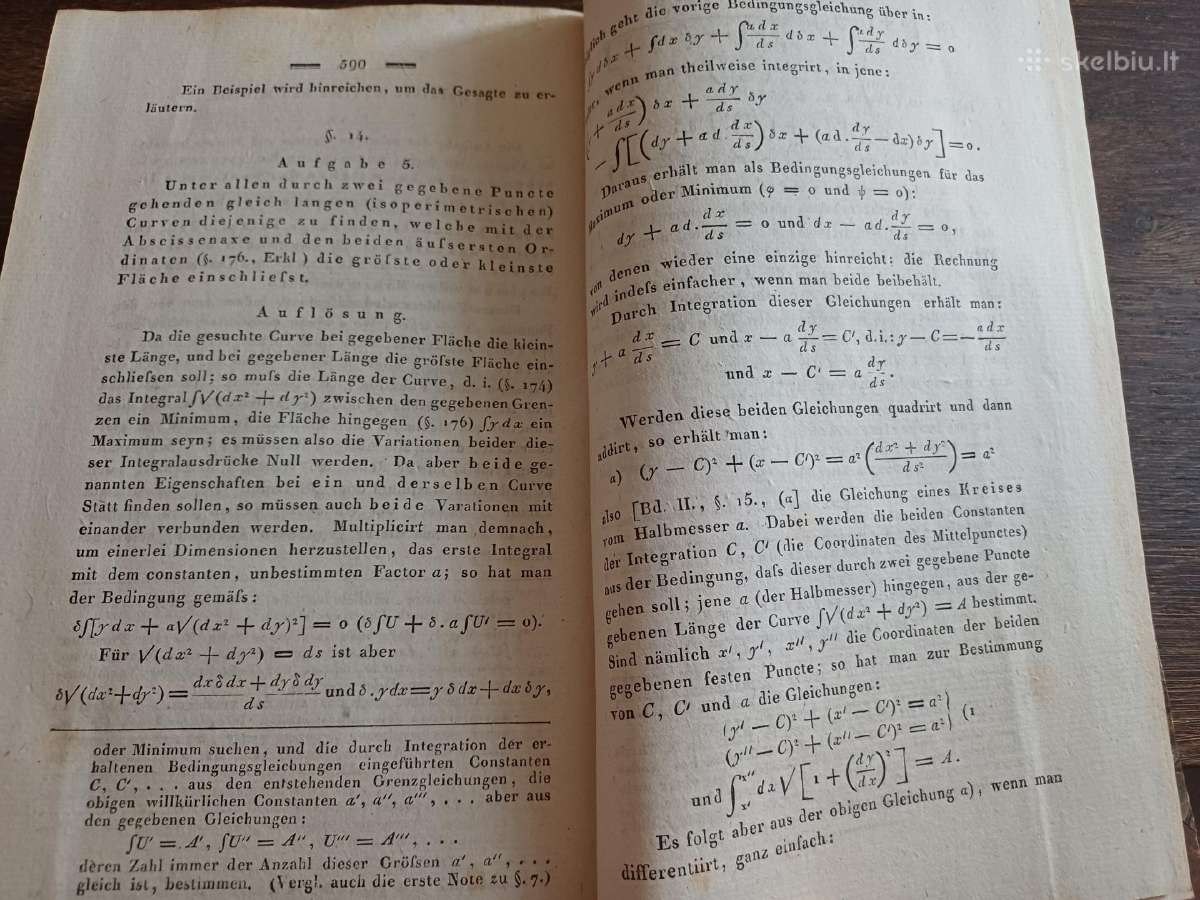 590
Ein Beispiel wird hinreichen, um das Gesagte zu er-
läutern.
§. 14.
Aufgabe 5.
Unter allen durch zwei gegebene Puncte
gehenden gleich langen (isoperimetrischen)
Curven diejenige zu finden, welche mit der
Abscissenaxe und den beiden äufsersten Or-
dinaten (§. 176., Erkl) die gröfste oder kleinste
Fläche einschliefst.
Auflösung.
Da die gesuchte Curve bei gegebener Fläche die klein-
ste Länge, und bei gegebener Länge die gröfste Fläche ein-
schliefsen soll; so mufs die Länge der Curve, d. i. (§. 174)
das Integral ∫√(dx² + dy²) zwischen den gegebenen Gren-
zen ein Minimum, die Fläche hingegen (§. 176) ∫y dx ein
Maximum seyn; es müssen also die Variationen beider die-
ser Integralausdrücke Null werden. Da aber beide ge-
nannten Eigenschaften bei ein und derselben Curve
Statt finden sollen, so müssen auch beide Varationen mit
einander verbunden werden. Multiplicirt man demnach,
um einerlei Dimensionen herzustellen, das erste Integral
mit dem constanten, unbestimmten Factor a; so hat man
der Bedingung gemäfs:
δ∫[y dx + a√(dx² + dy)²] = 0 (δ∫U + δ. a∫U' = 0).
Für √(dx² + dy²) = ds ist aber
δ√(dx²+dy²) = (dx δ dx + dy δ dy)/ds und δ . y dx = y δ dx + dx δy,
oder Minimum suchen, und die durch Integration der er-
haltenen Bedingungsgleichungen eingeführten Constanten
C, C', . . . aus den entstehenden Grenzgleichungen, die
obigen willkürlichen Constanten a', a'', a''', . . . aber aus
den gegebenen Gleichungen:
∫U' = A', ∫U'' = A'', U''' = A''', . . .
deren Zahl immer der Anzahl dieser Gröfsen a', a'', . . .
gleich ist, bestimmen. (Vergl. auch die erste Note zu §. 7.)
geht die vorige Bedingungsgleichung über in:
dδx + ∫dx δy + ∫(a dx)/ds dδx + ∫(a dy)/ds dδy = 0
wenn man theilweise integrirt, in jene:
+ (a dx)/ds) δx + (a dy)/ds δy
− ∫[(dy + a d. dx/ds) δx + (a d. dy/ds − dx) δy] = 0.
Daraus erhält man als Bedingungsgleichungen für das
Maximum oder Minimum (φ = 0 und ψ = 0):
dy + ad. dx/ds = 0 und dx − ad. dy/ds = 0,
von denen wieder eine einzige hinreicht; die Rechnung
wird indefs einfacher, wenn man beide beibehält.
Durch Integration dieser Gleichungen erhält man:
y + a dx/ds = C und x − a dy/ds = C', d.i.: y − C = − (a dx)/ds
und x − C' = a dy/ds.
Werden diese beiden Gleichungen quadrirt und dann
addirt, so erhält man:
a) (y − C)² + (x − C')² = a² ((dx² + dy²)/ds²) = a²
also [Bd. II., §. 15., (a] die Gleichung eines Kreises
vom Halbmesser a. Dabei werden die beiden Constanten
der Integration C, C' (die Coordinaten des Mittelpunctes)
aus der Bedingung, dafs dieser durch zwei gegebene Puncte
gehen soll; jene a (der Halbmesser) hingegen, aus der ge-
gebenen Länge der Curve ∫√(dx² + dy²) = A bestimmt.
Sind nämlich x', y', x'', y'' die Coordinaten der beiden
gegebenen festen Puncte; so hat man zur Bestimmung
von C, C' und a die Gleichungen:
(y' − C)² + (x' − C')² = a²}
(y'' − C)² + (x'' − C')² = a²} (1
und ∫x'^x'' dx√[1 + (dy/dx)²] = A.
Es folgt aber aus der obigen Gleichung a), wenn man
differentiirt, ganz einfach:
skelbiu.lt